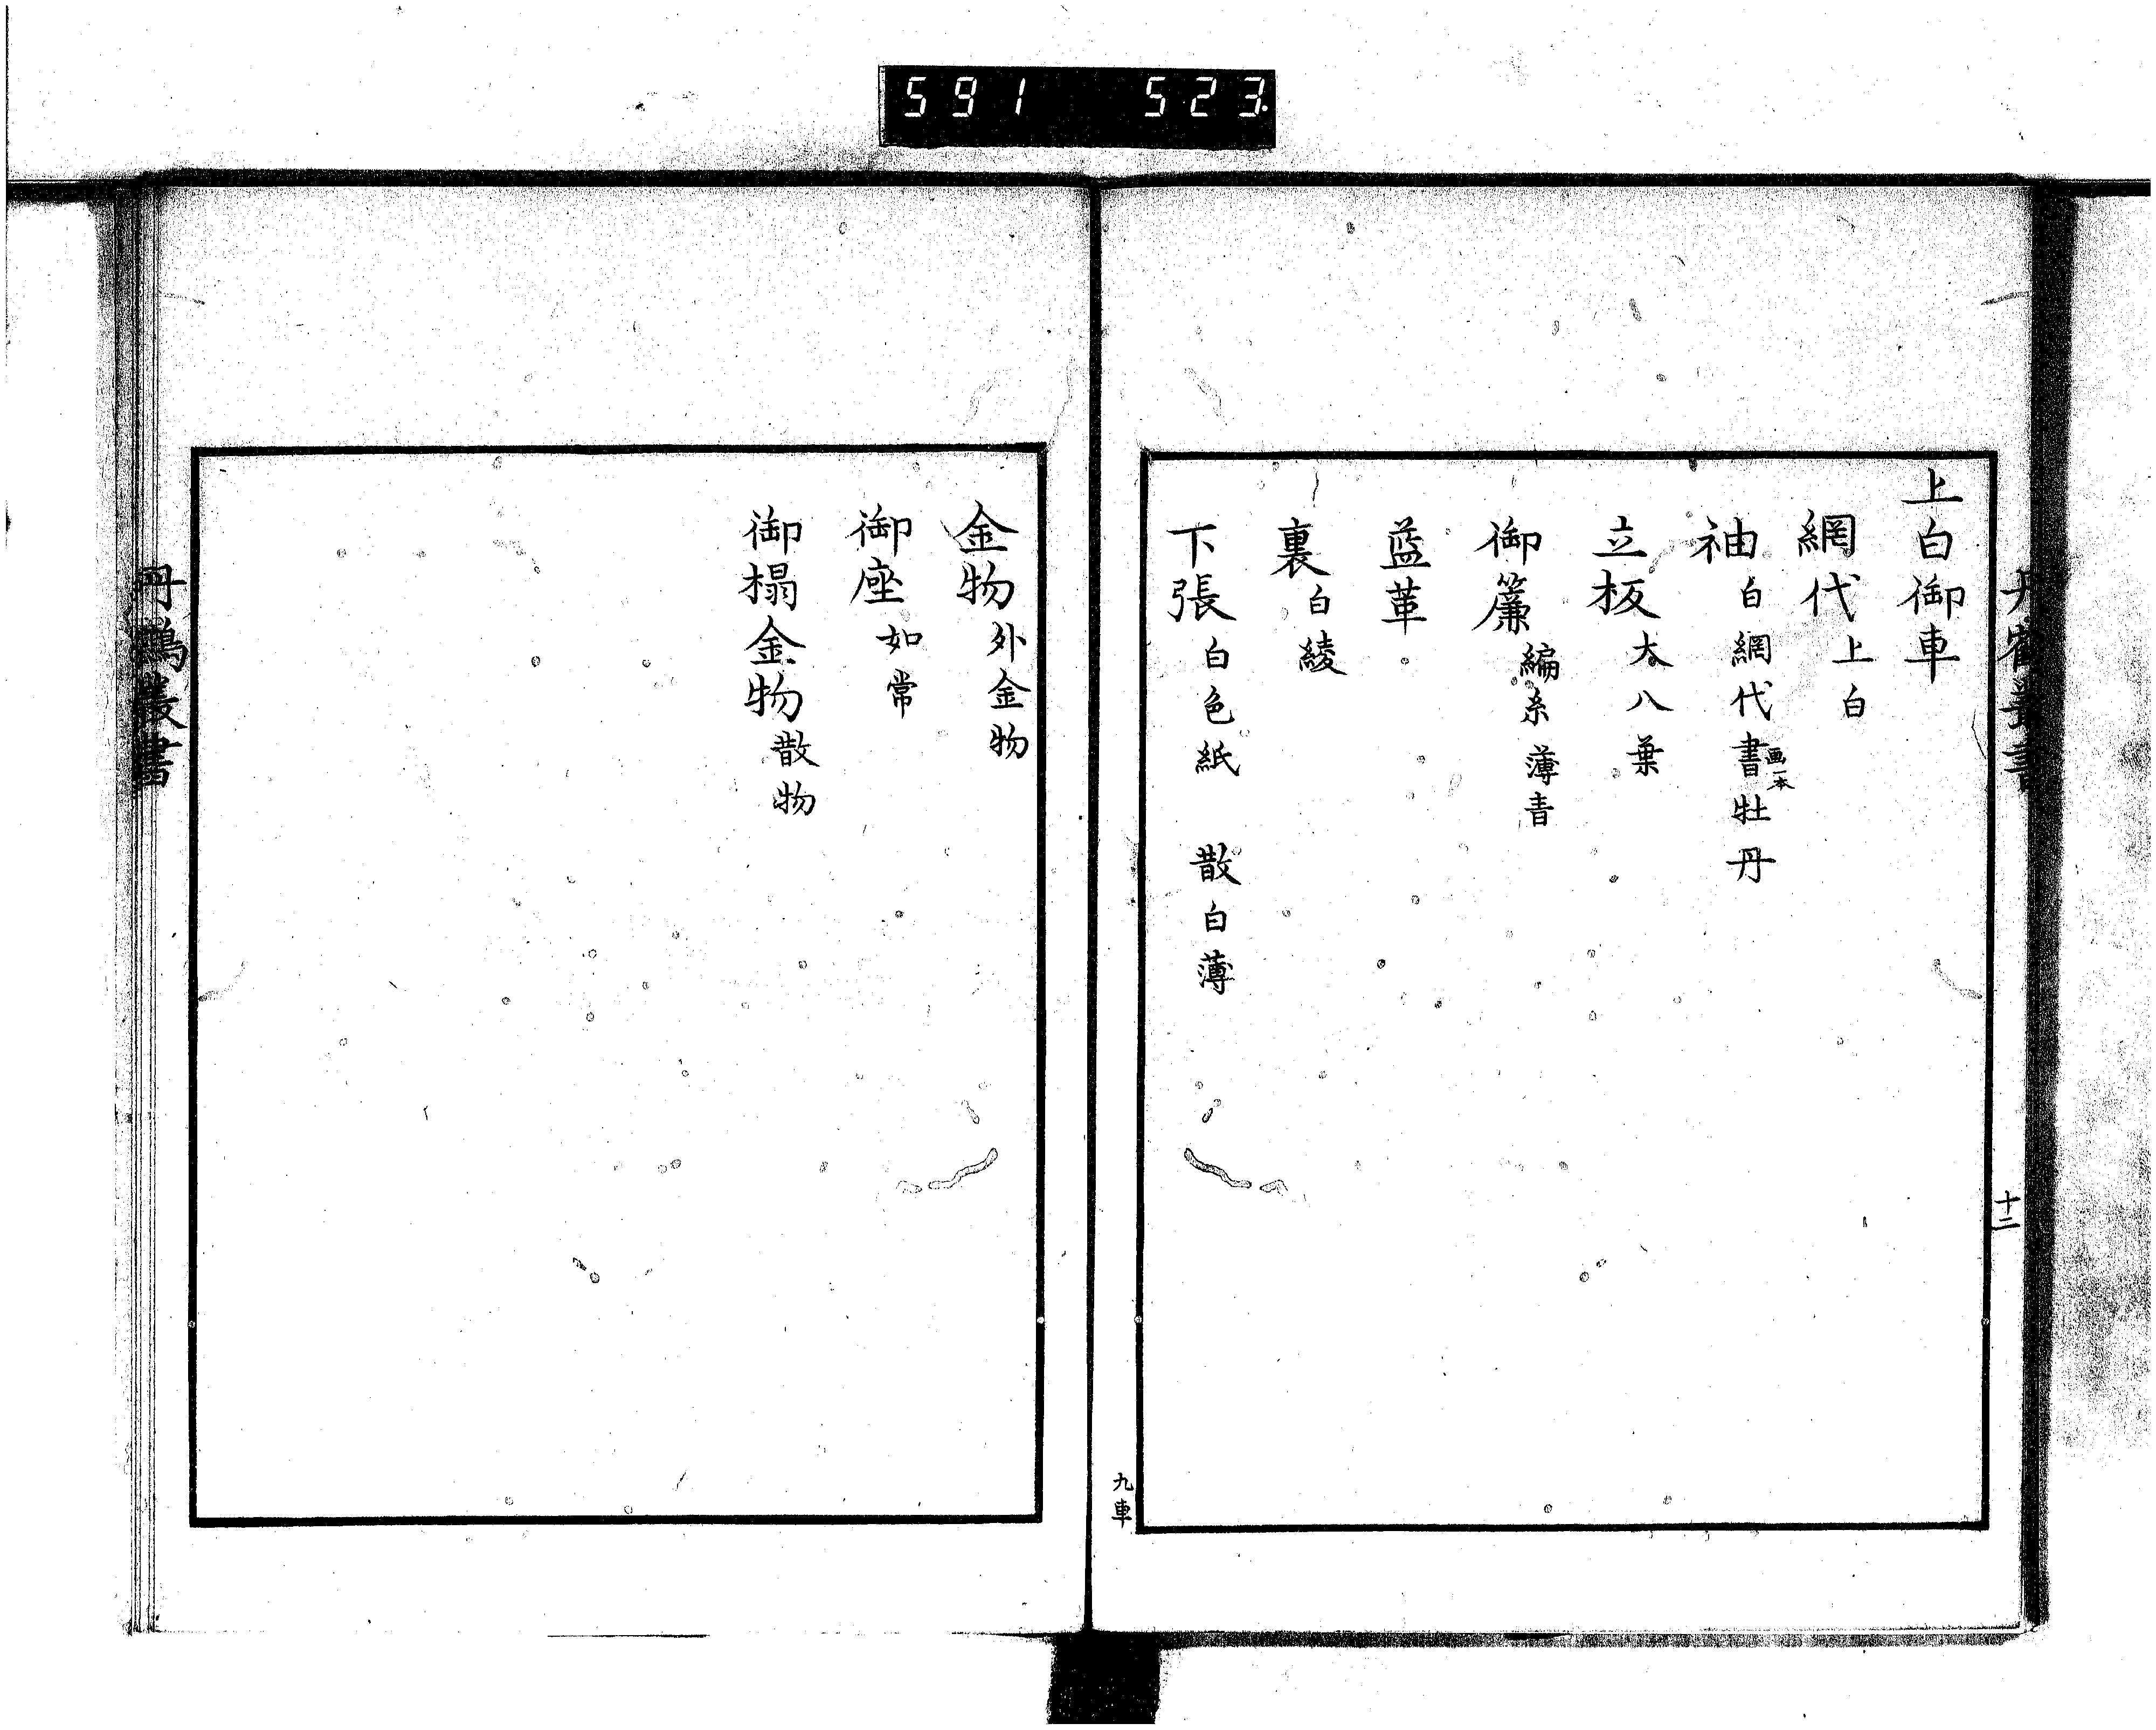 591 523.
丹鶴叢書
十二
上白御車
網代上白
袖白網代書画一本牡丹
立板大八葉
御簾編糸薄青
藍革
裏白綾
下張白色紙 散白薄
九車
金物外金物
御座如常
御榻金物散物
丹鶴叢書